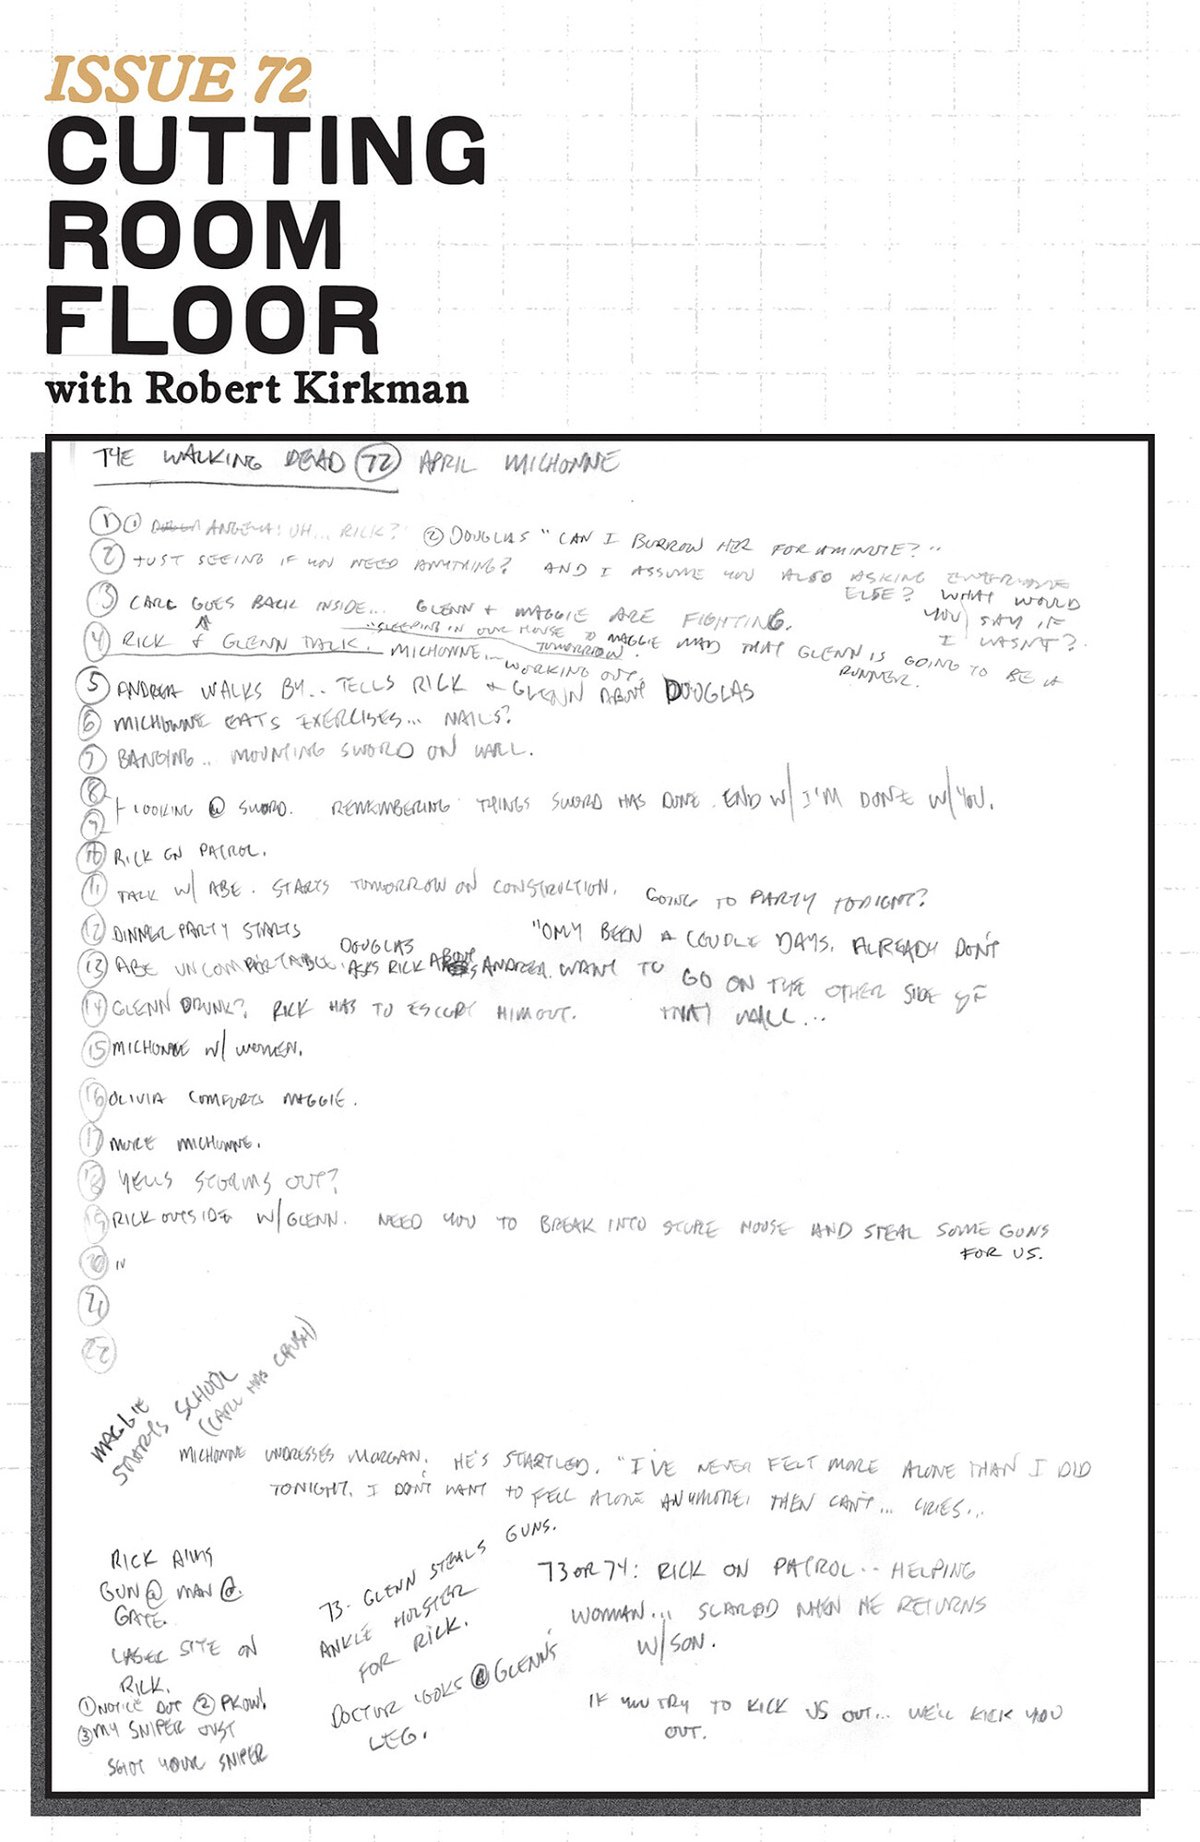 ISSUE 72
CUTTING
ROOM
FLOOR
with Robert Kirkman
THE WALKING DEAD 72 APRIL MICHONNE
1 1 ANGELA: UH... RICK? 2 DOUGLAS "CAN I BURROW HER FOR A MINUTE?"
2 JUST SEEING IF YOU NEED ANYTHING? AND I ASSUME YOU ALSO ASKING EVERYONE
ELSE? WHAT WOULD
YOU SAY IF
I WASN'T?
3 CARL GOES BACK INSIDE... GLENN + MAGGIE ARE FIGHTING.
"SLEEPING IN OUR HOUSE TOMORROW.
4 RICK + GLENN TALK. MICHONNE... WORKING OUT. MAGGIE MAD THAT GLENN IS GOING TO BE A
RUNNER.
5 ANDREA WALKS BY.. TELLS RICK + GLENN ABOUT DOUGLAS
6 MICHONNE EATS EXERCISES... NAILS?
7 BANGING.. MOUNTING SWORD ON WALL.
8
9 LOOKING @ SWORD. REMEMBERING THINGS SWORD HAS DONE. END W/ I'M DONE W/ YOU.
10 RICK ON PATROL.
11 TALK W/ ABE. STARTS TOMORROW ON CONSTRUCTION. GOING TO PARTY TONIGHT?
12 DINNER PARTY STARTS
13 ABE UNCOMFORTABLE. DOUGLAS ASKS RICK ABOUT ANDREA.
"ONLY BEEN A COUPLE DAYS. ALREADY DON'T
WANT TO GO ON THE OTHER SIDE OF
THAT WALL...
14 GLENN DRUNK? RICK HAS TO ESCORT HIM OUT.
15 MICHONNE W/ WOMEN.
16 OLIVIA COMFORTS MAGGIE.
17 MORE MICHONNE.
18 YELLS STORMS OUT?
19 RICK OUTSIDE W/ GLENN. NEED YOU TO BREAK INTO STORE HOUSE AND STEAL SOME GUNS
FOR US.
20 "
21
22
MAGGIE
STARTS SCHOOL
(CARL HAS CRUSH)
MICHONNE UNDRESSES MORGAN. HE'S STARTLED. "I'VE NEVER FELT MORE ALONE THAN I DID
TONIGHT. I DON'T WANT TO FELL ALONE ANYMORE. THEN CAN'T... CRIES...
RICK AIMS
GUN @ MAN @
GATE.
LASER SITE ON
RICK.
1 NOTICE DOT 2 PKOW!
3 MY SNIPER JUST
SHOT YOUR SNIPER
73- GLENN STEALS GUNS.
ANKLE HOLSTER
FOR RICK.
DOCTOR LOOKS @ GLENN'S
LEG.
73 OR 74: RICK ON PATROL.. HELPING
WOMAN... SCARED WHEN HE RETURNS
W/ SON.
IF YOU TRY TO KICK US OUT... WE'LL KICK YOU
OUT.